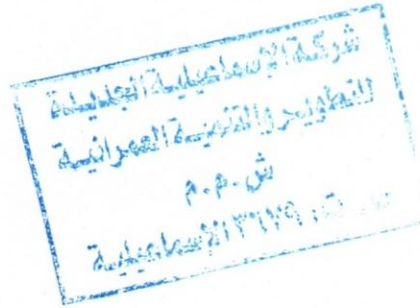 شركة الإسماعيلية الجديدة
للتطوير والتنمية العمرانية
ش.م.م
٣٦١٢٩ الإسماعيلية